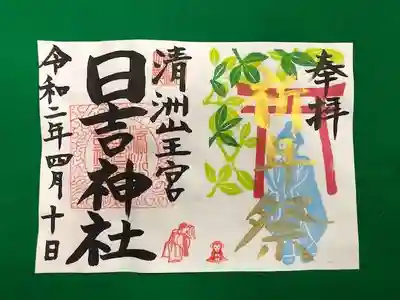 奉拝
清洲山王宮
日吉神社
令和二年四月十日